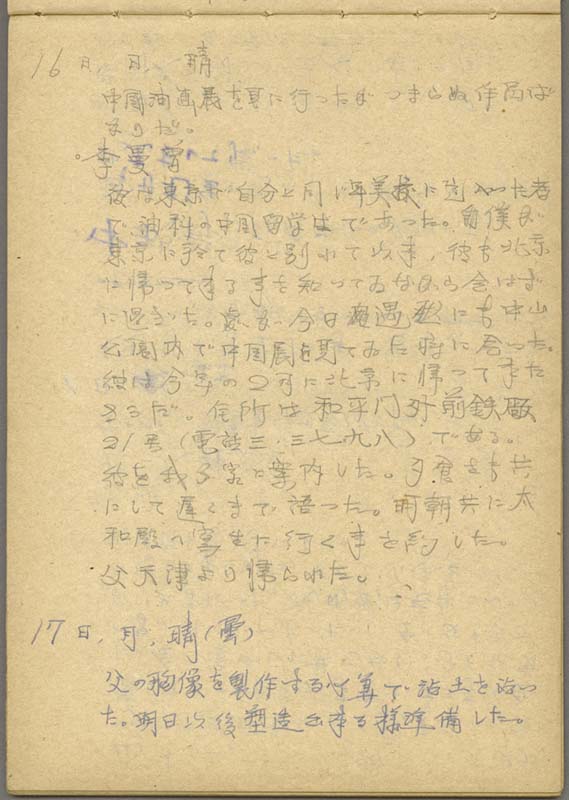 16日,日,晴
中国油画展を見に行ったがつまらぬ作品ば
かりだ。
○李曼曽
彼は東京で自分と同じ年美校に這入つた者
で油科の中国留学生であつた。自僕が
東京に於て彼と別れて以来,彼も北京
に帰つて来る事を知つてゐながら会はず
に過ぎた。今日偶然にも中山
公園内で中国展を見てゐた時に会つた。
彼は今年の2月に北京に帰つて来た
さうだ。住所は和平门外前鉄廠
21号(電話三.三七九八)である。
彼を我が家に案内した。夕食をも共
にして遅くまで語つた。明朝共に太
和殿へ写生に行く事を約した。
父天津より帰られた。
17日,月,晴(曇)
父の胸像を製作する心算で粘土を
た。明日以後塑造出来る様準備した。